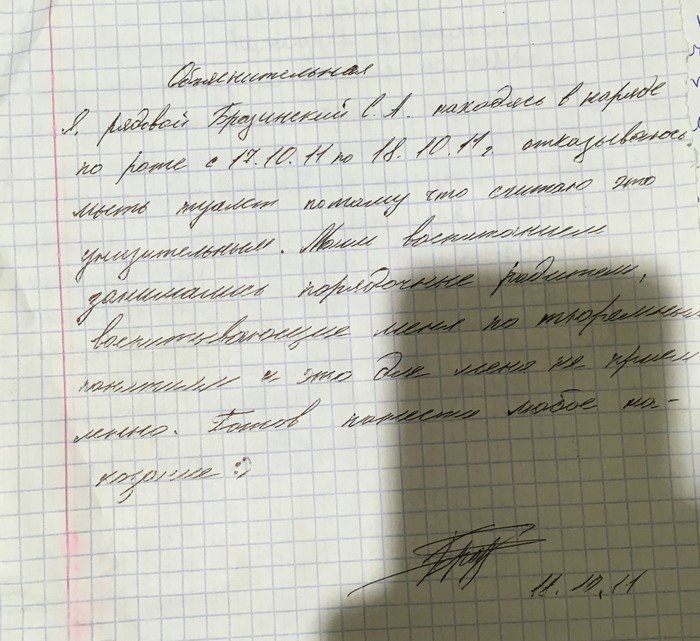 Объяснительная
Я, рядовой Бразинский С. А. находясь в наряде
по роте с 17.10.11 по 18.10.11г. отказываюсь
мыть туалет потому что считаю это
унизительным. Моим воспитанием
занимались порядочные родители,
воспитывающие меня по тюремным
понятиям и это для меня не прием
лемо. Готов понести любое на-
казание :)
18.10.11